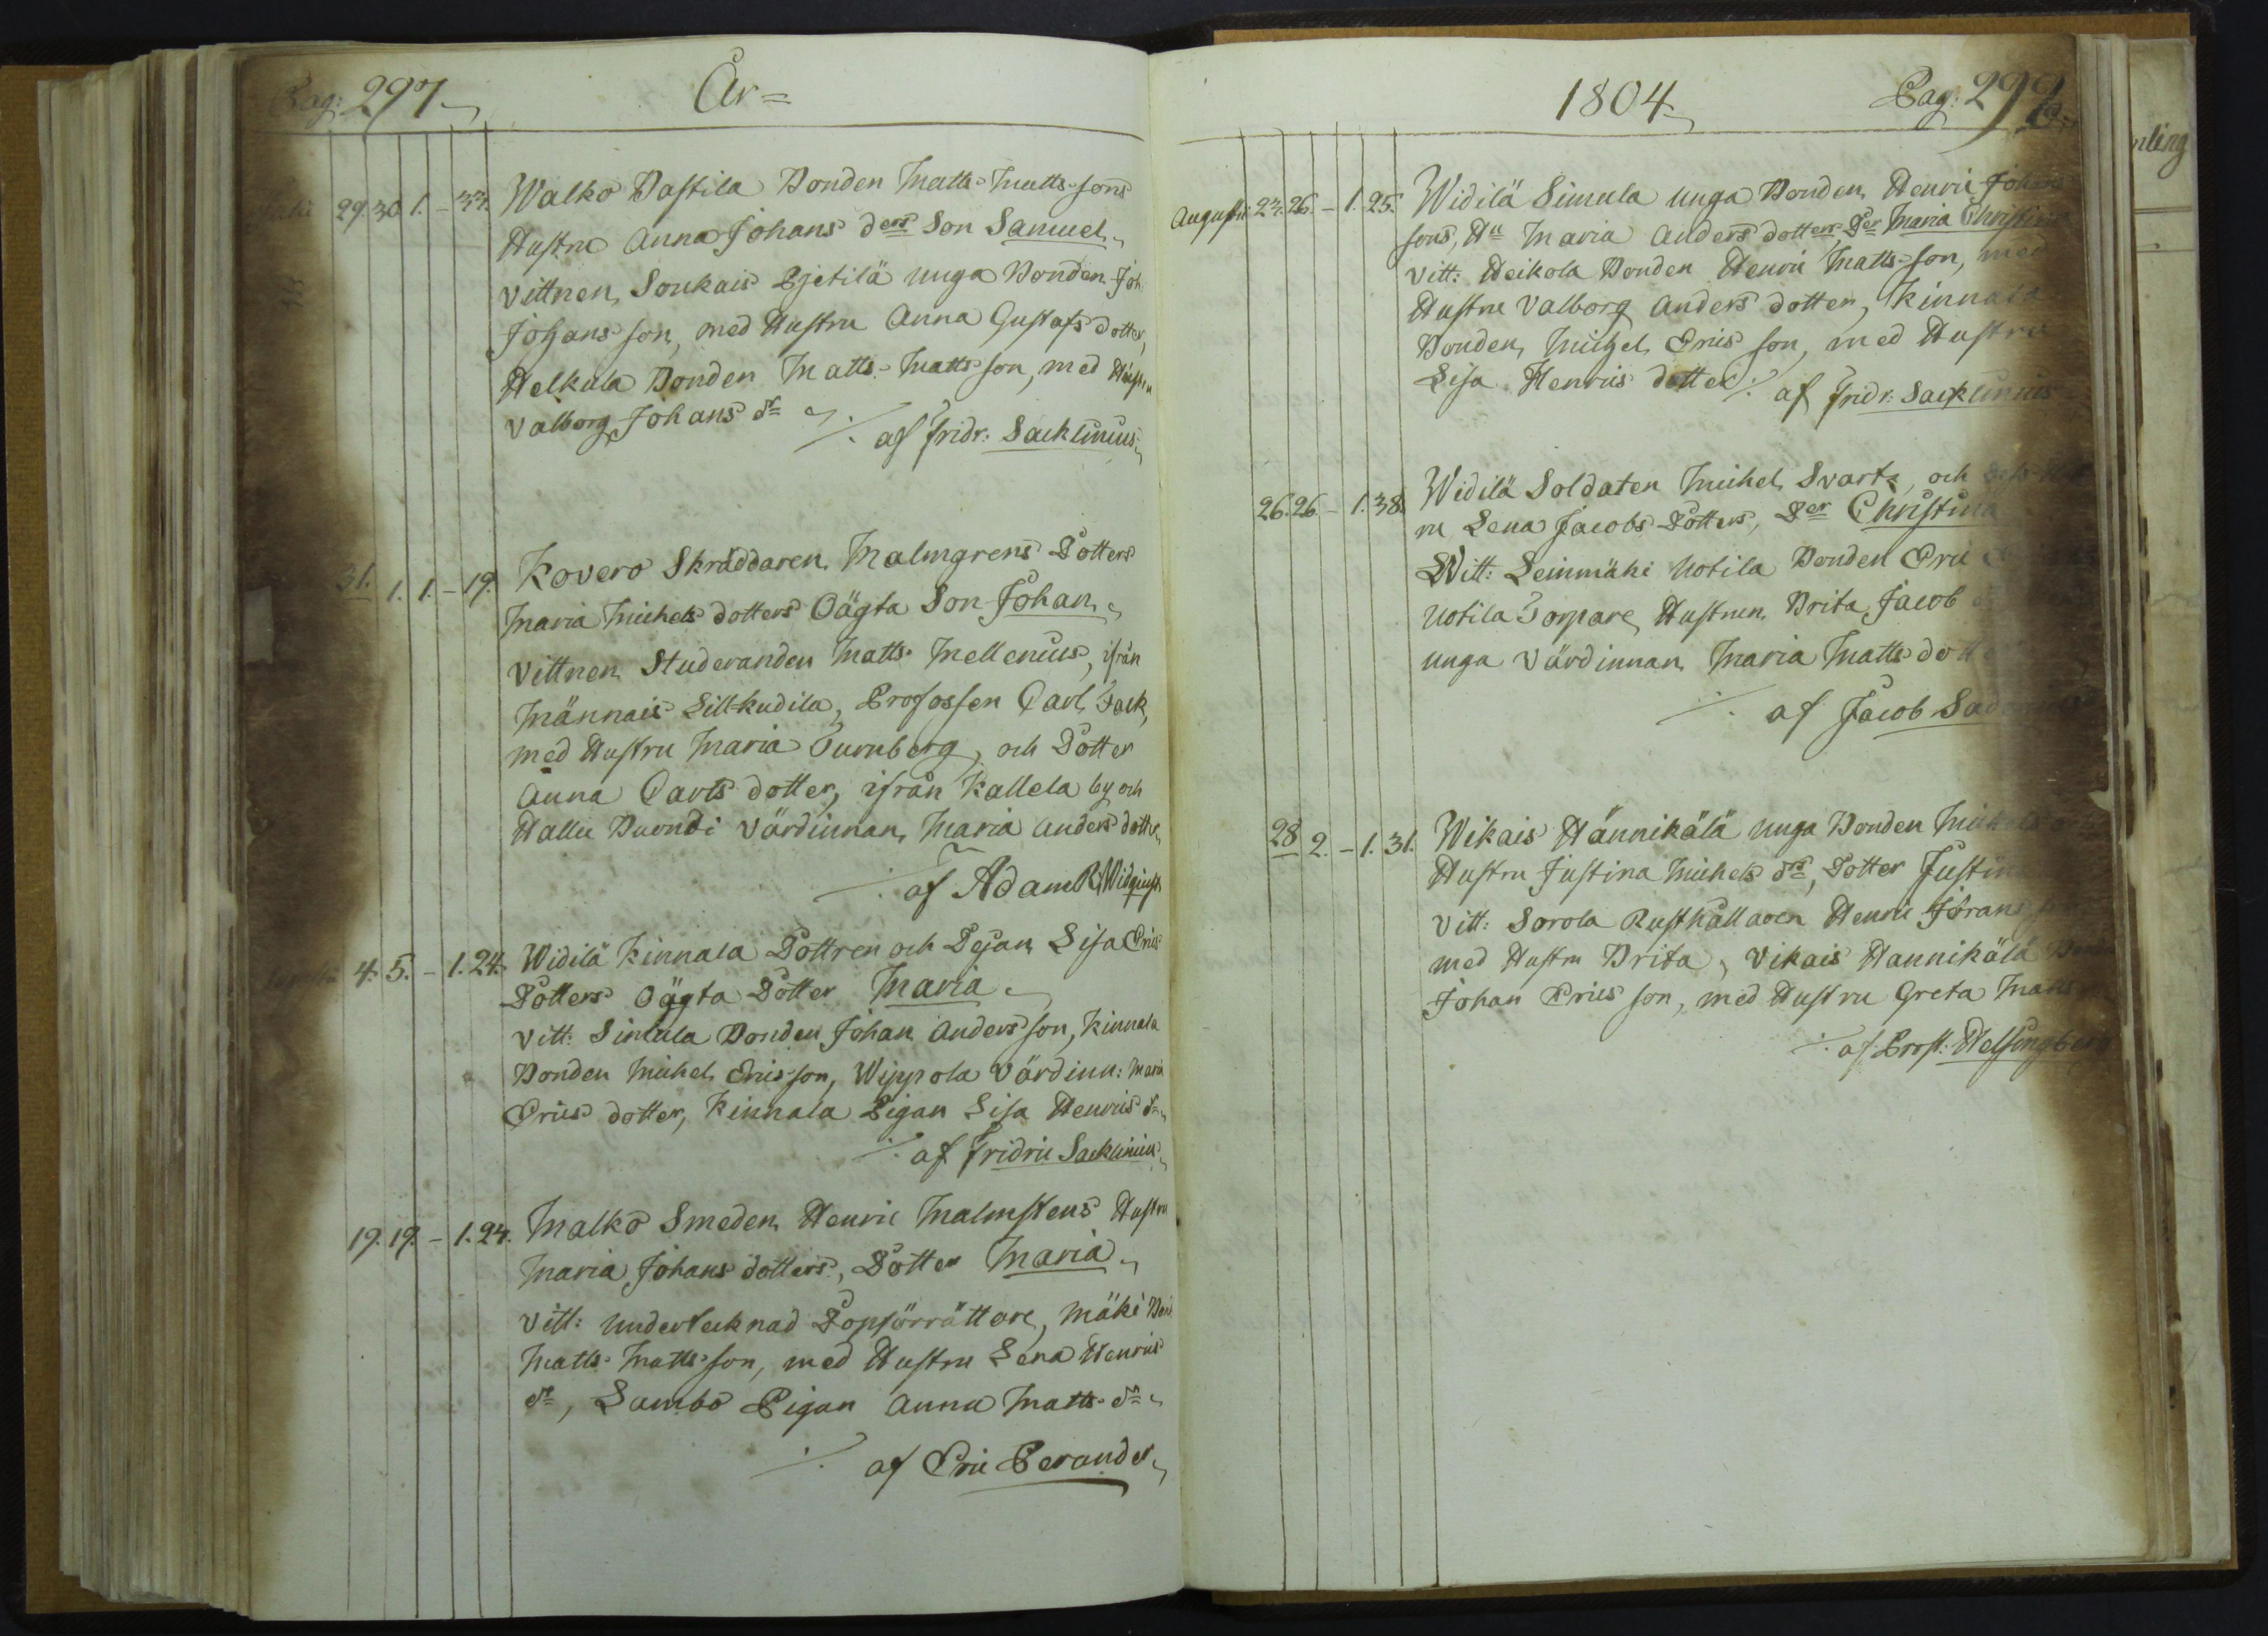 Pag: 297
År=
29. 30. 1. - 33. Walko Pastila Bonden Matts Matts-sons
Hustru Anna Johans ders Son Samuel.
Vittnen, Soukais Pjetilä unga Bonden Joh:
Johans son, med Hustru Anna Gustafs dotter,
Helkula Bonden Matts Matts son, med Hustru
Valborg Johans dr
./. af Fridr: Sacklinius.
31. 1. 1. - 19. Kovero Skräddaren Malmgrens Dotters
Maria Michels dotters Oägta Son Johan.
Vittnen Studeranden Matts Mellenius, ifrån
Männais Sillkudila, Profossen Carl Fack,
med Hustru Maria Turnberg, och Dotter
Anna Carls dotter, ifrån Kallela by och
Hallu Värdinnan, Maria Anders dotter
./. af Adam Widqvist
4. 5. - 1. 24. Widilä Kinnala Dottren och Pejan Lisa Erics
Dotters Oägta Dotter Maria.
Vitt: Simula Bonden Johan Anders son, Kinnala
Bonden Michel Erics son, Wippola Värdinn: Maria
Erics dotter, Kinnala Pigan Lisa Henrics dr
./. af Fridric Sacklinius.
19. 19. - 1. 24. Malko Smeden Henric Malmstens Hustru
Maria Johans dotters, Dotter Maria.
Vitt: undertecknad Dopförrättare, Mäki Bond
Matts Matts son, med Hustru Lena Henrics
dr, Sambo Pigan Anna Matts dr
./. af Eric Perander.
1804
Pag: 298
Augusti 23. 26. - 1. 25. Widilä Simula unga Bonden Henric Johans
sons, Hu Maria Anders dotters Der Maria Christina
Vitt: Heikola Bonden Henric Matts son, med
Hustru Valborg Anders dotter, Kinnala
Bonden, Michel Erics son, med Hustru
Lisa Henrics dotter ./. af Fridr: Sacklinius
26. 26. - 1. 38. Widilä Soldaten Michel Svart, och dess Hust
ru Lena Jacobs Dotters, Der Christina
Witt: Leinmäki Uotila Bonden Eric
Uotila Torpare Hustrun Brita Jacob
unga Värdinnan Maria Matts dotter
./. af Jacob
28 2. - 1. 31. Wikais Hännikälä unga Bonden Michel
Hustru Justina Michels drs, Dotter Justina
Vitt: Sorola Rusthållaren Henric Jörans
med Hustru Brita, Vikais Hannikälä Bonden
Johan Erics son, med Hustru Greta Matts
./. af Prost: Helsingberg